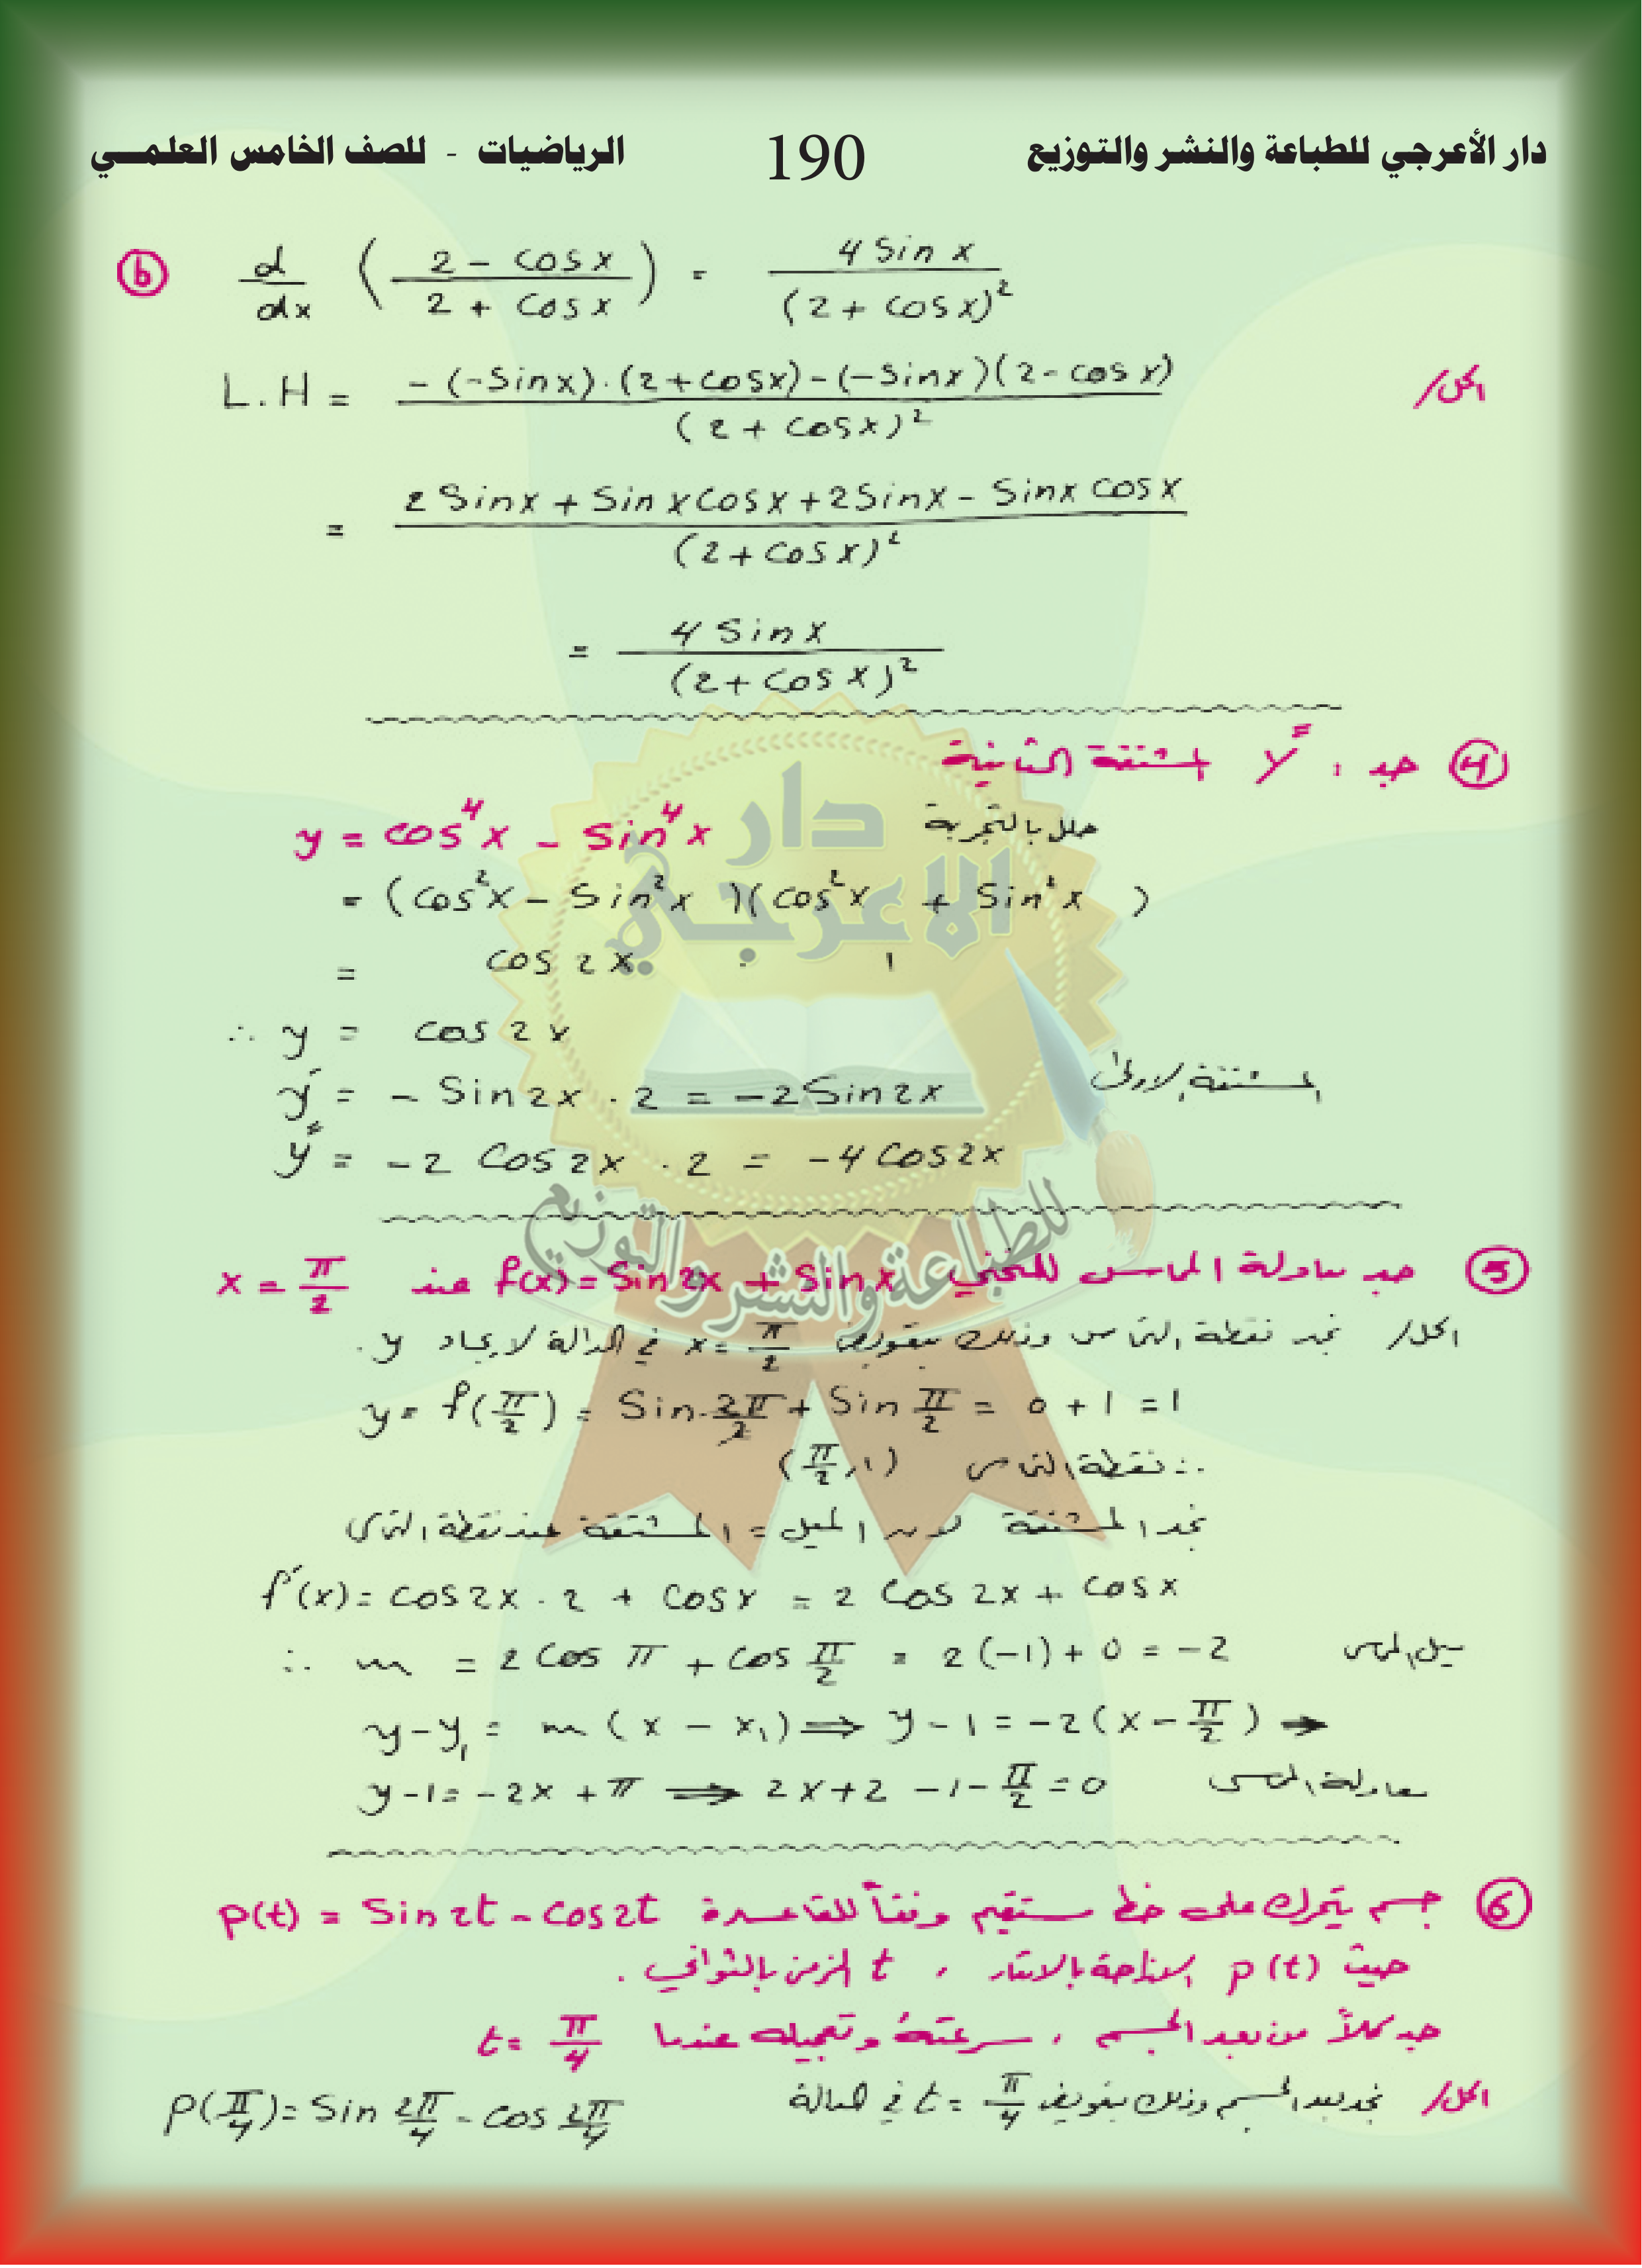 دار الأعرجي للطباعة والنشر والتوزيع 190 الرياضيات - للصف الخامس العلمـــي
ⓑ d/dx ( (2 - cos x)/(2 + cos x) ) = 4 sin x / (2 + cos x)²
الحل/ L.H = (-(-sin x).(2+cos x) - (-sin x)(2-cos x)) / (2 + cos x)²
= (2 sin x + sin x cos x + 2 sin x - sin x cos x) / (2+cos x)²
= 4 sin x / (2+cos x)²
④ جد : y″ المشتقة الثانية
y = cos⁴x - sin⁴x حلل بالتجربة
= (cos²x - sin²x)(cos²x + sin²x)
= cos 2x . 1
∴ y = cos 2x
y′ = - sin 2x . 2 = -2 sin 2x المشتقة الاولى
y″ = -2 cos 2x . 2 = -4 cos 2x
⑤ جد معادلة المماس للمنحني f(x) = sin 2x + sin x عند x = π/2
الحل/ نجد نقطة التماس وذلك بتعويض x = π/2 في الدالة لايجاد y.
y = f(π/2) = sin 2π/2 + sin π/2 = 0 + 1 = 1
∴ نقطة التماس (π/2, 1)
نجد المشتقة لان الميل = المشتقة عند نقطة التماس
f′(x) = cos 2x . 2 + cos x = 2 cos 2x + cos x
∴ m = 2 cos π + cos π/2 = 2(-1) + 0 = -2 ميل المماس
y - y₁ = m(x - x₁) ⟹ y - 1 = -2(x - π/2) →
y - 1 = -2x + π ⟹ 2x + 2 - 1 - π/2 = 0 معادلة المماس
⑥ جسم يتحرك على خط مستقيم وفقاً للقاعدة p(t) = sin 2t - cos 2t
حيث p(t) الازاحة بالامتار ، t الزمن بالثواني .
جد كلاً من بعد الجسم ، سرعتهُ وتعجيله عندما t = π/4
الحل/ نجد بعد الجسم وذلك بتعويض t = π/4 في الدالة P(π/4) = sin 2π/4 - cos 2π/4
دار
الاعرجي
للطباعة والنشر والتوزيع